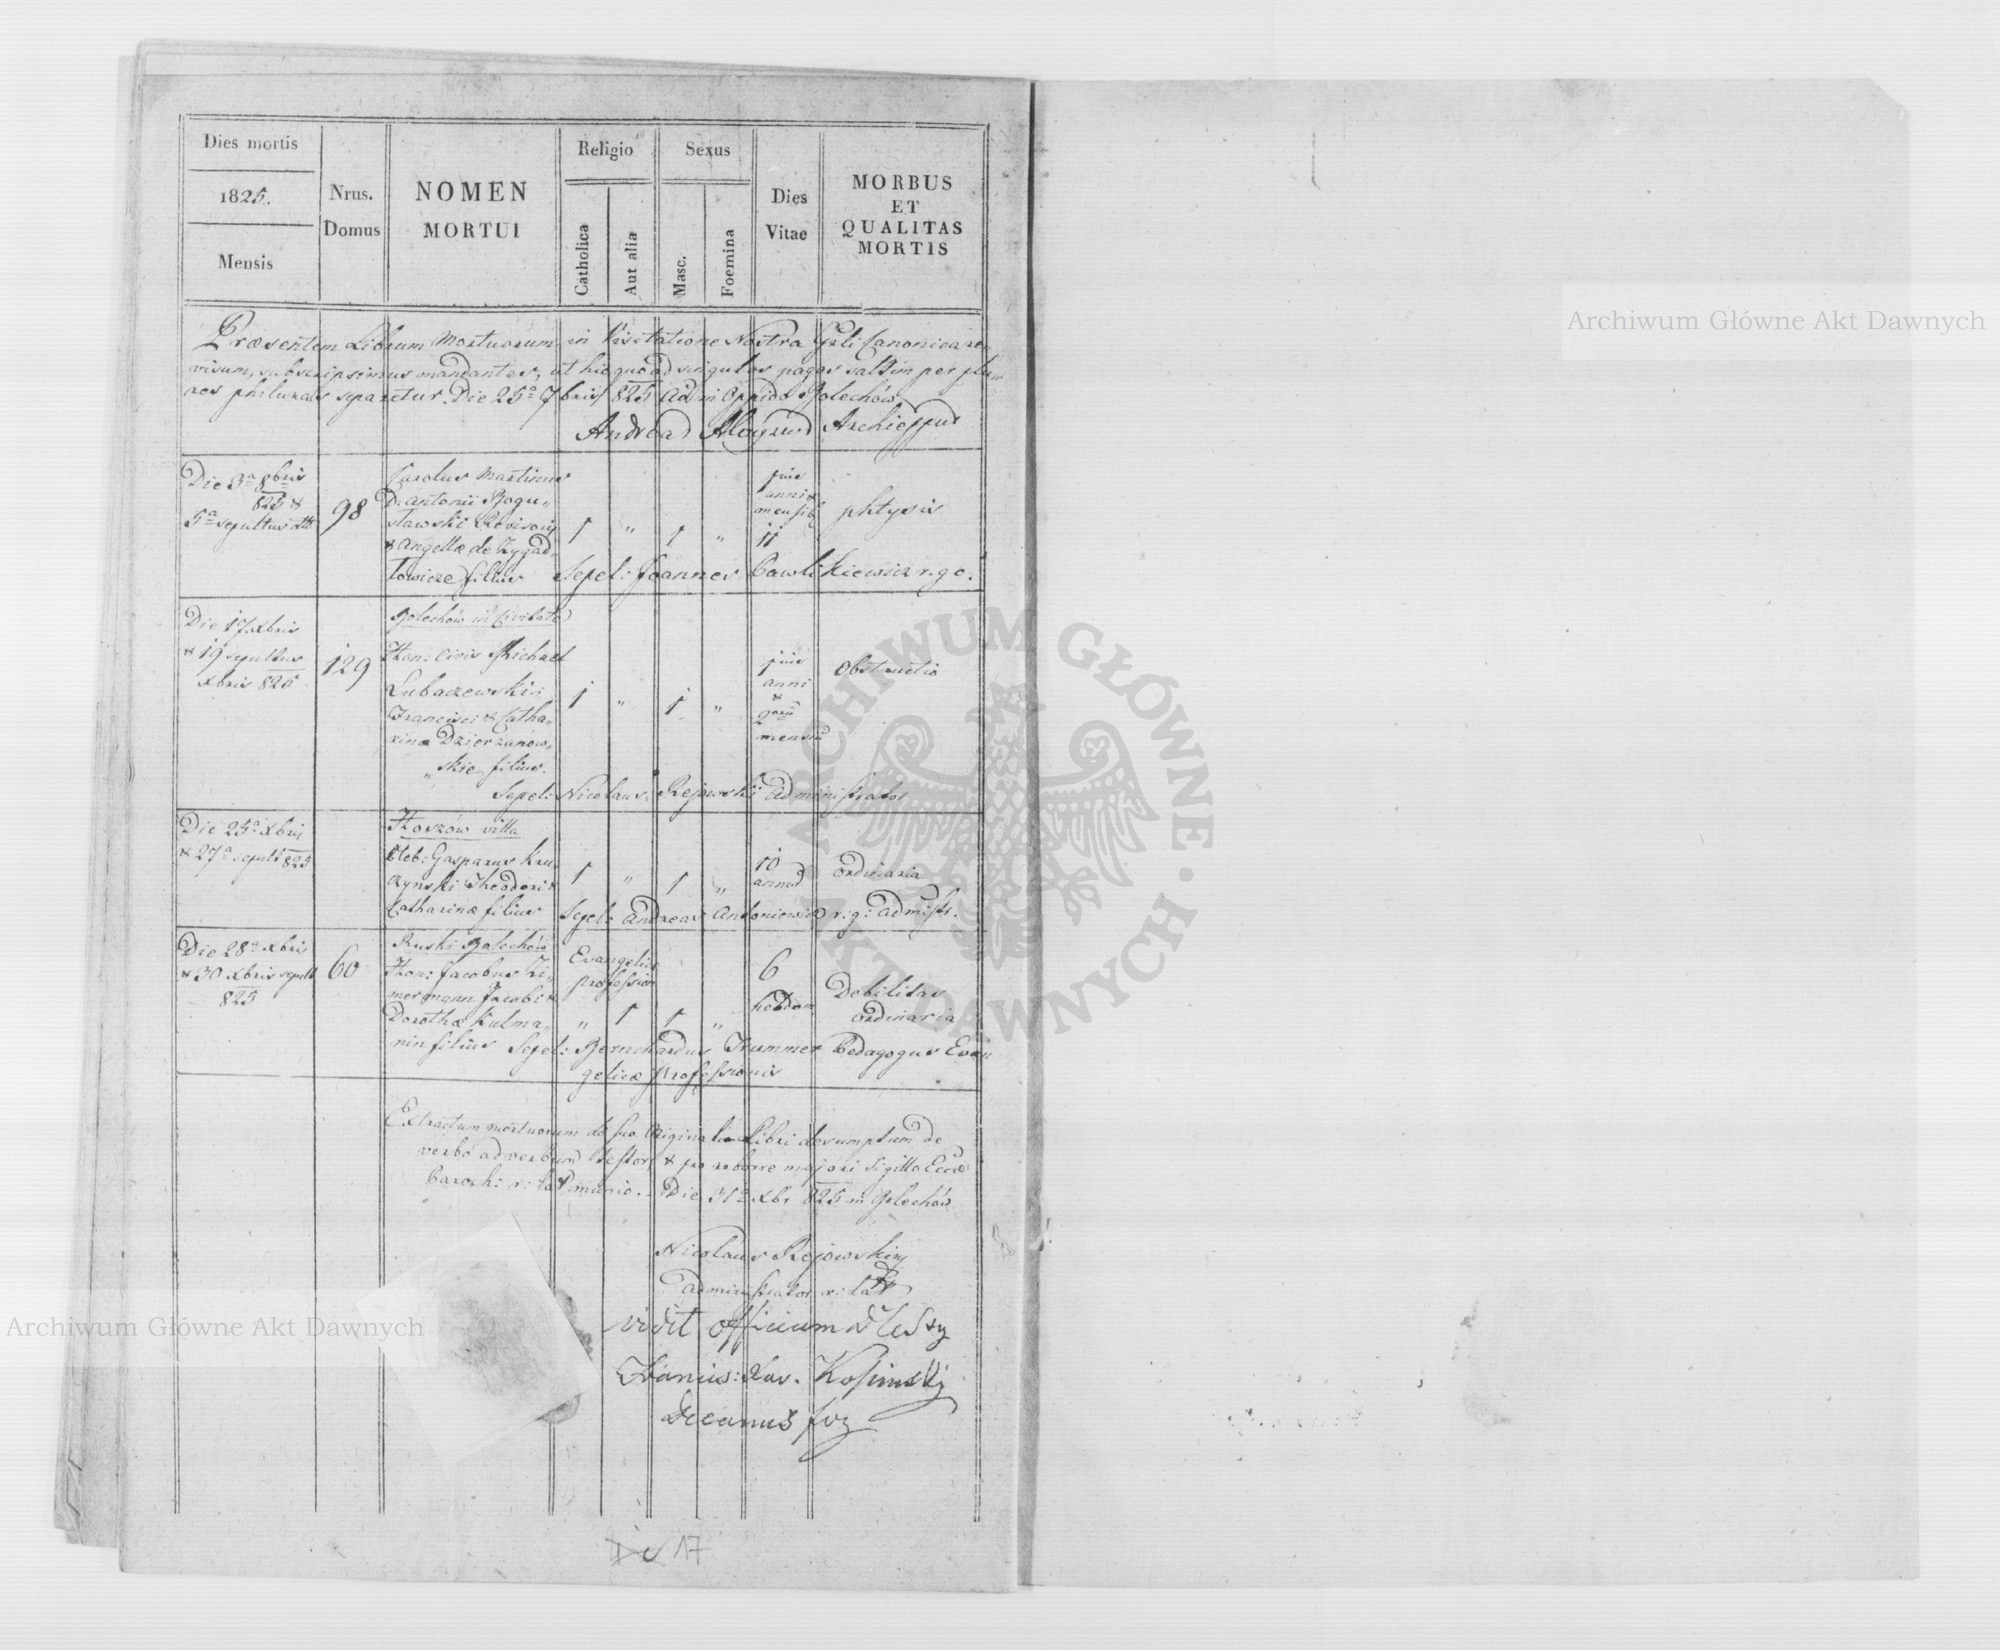 Dies mortis
1825.
Mensis
Nrus.
Domus
NOMEN
MORTUI
Religio
Catholica
Aut alia
Sexus
Masc.
Foemina
Dies
Vitae
MORBUS
ET
QUALITAS
MORTIS
Præsentem Librum Mortuorum in Visitatione Nostra Canonica re,,
visum, subscripsimus mandantes, ut hic quoad singulos pagos saltim per plu,,
res philuras separetur. Die 25a 7bris 825 in Oppido Bolechów
Andreas Aloysius Archieppus
Die 3a 8bris
825 &
5a sepultus
98
Carolus Martinus
D: Antonii Bogu,,
sławski Revisoris
& Angellæ de Zygad,,
łowicze filius
1 " 1 "
unius
anni &
mensis
11
phtysis
Sepel: Joannes Pawlikiewicz r. g. c.
Die 17 Xbris
& 19 sepultus
Xbris 825
129
Bolechów in Civitate
Hon: Civis Michael
Lubaczewski
Francisci & Catha,,
rinæ Dzierzanow,,
skie filius.
1 " 1 "
unius
anni
&
mensium
Obstructio
Sepel: Nicolaus Rejowski Administrator
Die 25a Xbris
& 27a sepult 825
Hoszów villa
Pleb: Gasparus Kru
czynski Theodori &
Catharinæ filius
1 " 1 "
10
annos
Ordinaria
Sepel: Andreas Antoniewicz r: g: Admstr.
Die 28a Xbris
& 30 Xbris sepult
825
60
Ruski Bolechów
Hon: Jacobus Zi,,
mermann Jacobi &
Dorothæ Kulma,,
nin filius
Evangelicæ
professionis
" 1 1 "
6
hebdom
Debilitas
ordinaria
Sepel: Bernchardus Trummer Pedagogus Evan
gelicæ Professionis
Extractum mortuorum de suo Originalis Libri desumptum de
verbo ad verbum testor, & pro robore majori Sigillo Eccæ
Paroch: r: lat munio. Die 31a Xbr 825 in Bolechów
Nicolaus Rejowski
Administrator r: lat
vidit officium
Francis: Xav. Kosinski
Decanus
17
Archiwum Główne Akt Dawnych
Archiwum Główne Akt Dawnych
ARCHIWUM GŁÓWNE AKT DAWNYCH